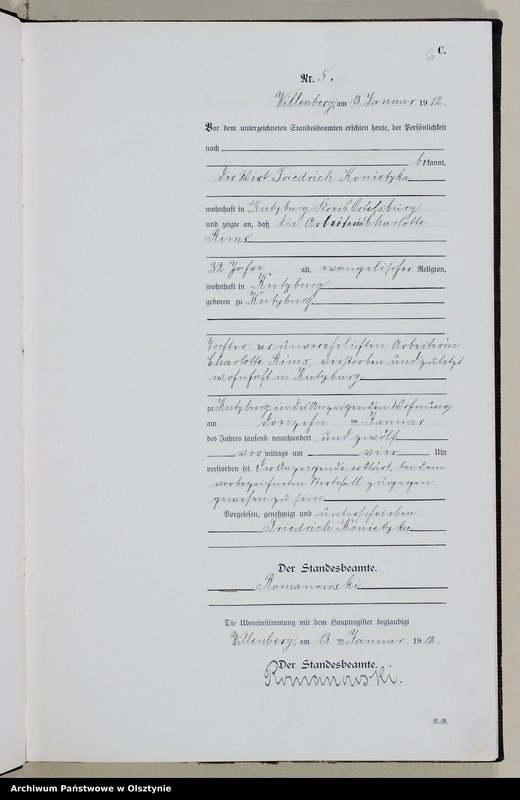 6 C.
Nr. 5.
Willenberg, am 13. Januar 1912.
Vor dem unterzeichneten Standesbeamten erschien heute, der Persönlichkeit
nach
bekannt,
der Wirt Friedrich Konietzka
wohnhaft in Kutzburg Kreis Ortelsburg
und zeigte an, daß die Arbeiterin Charlotte
Rims
32 Jahre alt, evangelischer Religion,
wohnhaft in Kutzburg
geboren zu Kutzburg
Tochter der unverehelichten Arbeiterin
Charlotte Rims, verstorben und zuletzt
wohnhaft in Kutzburg
zu Kutzburg in des Anzeigenden Wohnung
am dreizehn ten Januar
des Jahres tausend neunhundert und zwölf
vor mittags um vier Uhr
verstorben sei. Der Anzeigende erklärt, bei dem
vorbezeichneten Sterbefall zugegen
gewesen zu sein
Vorgelesen, genehmigt und unterschrieben
Friedrich Konietzka
Der Standesbeamte.
Romanowski
Die Übereinstimmung mit dem Hauptregister beglaubigt
Willenberg, am 13 ten Januar 1912.
Der Standesbeamte.
Romanowski.
N.-R.
Archiwum Państwowe w Olsztynie